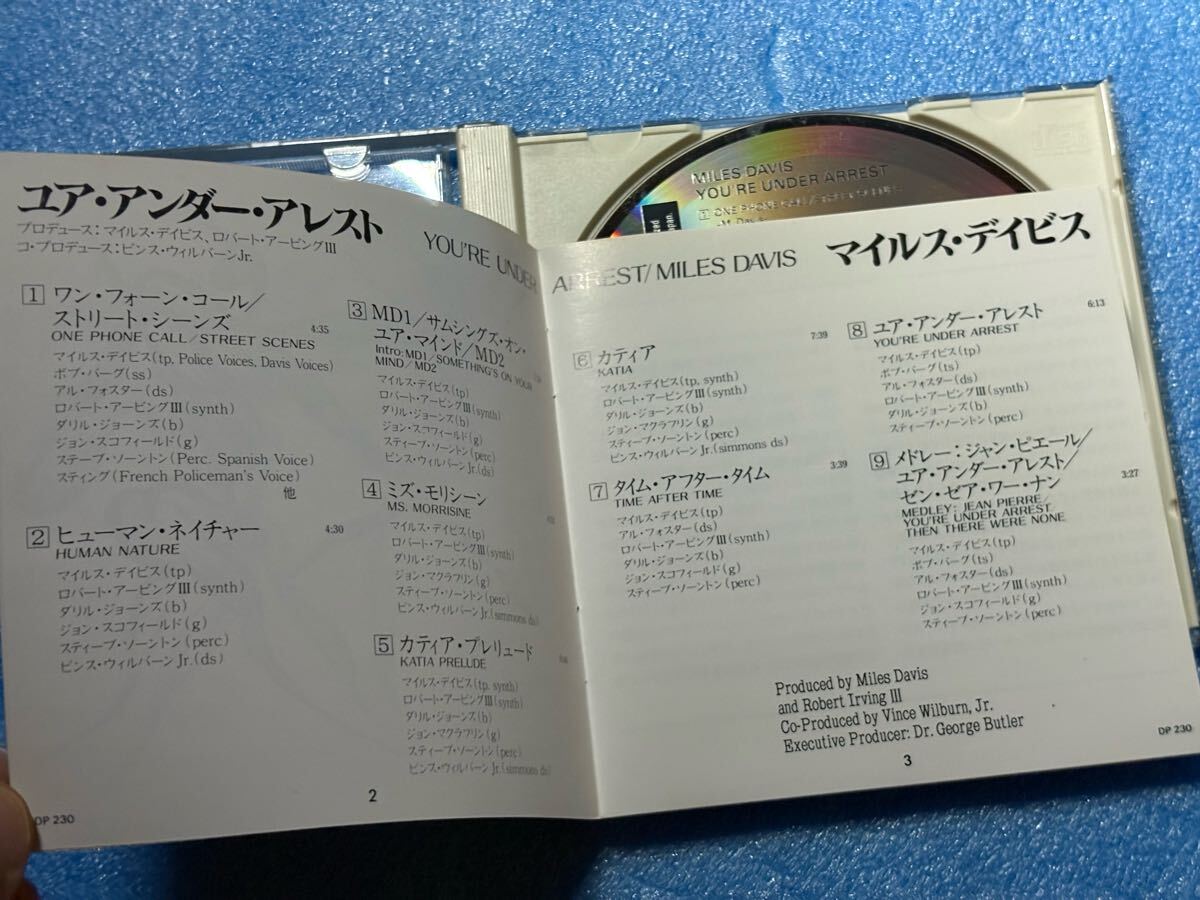 MILES DAVIS
YOU'RE UNDER ARREST
1 ONE PHONE CALL/STREET SCENES
ユア・アンダー・アレスト
プロデュース：マイルス・デイビス、ロバート・アービングIII
コ・プロデュース：ビンス・ウィルバーンJr.
YOU'RE UNDER ARREST/MILES DAVIS
マイルス・デイビス
1 ワン・フォーン・コール/
ストリート・シーンズ 4:35
ONE PHONE CALL/STREET SCENES
マイルス・デイビス(tp, Police Voices, Davis Voices)
ボブ・バーグ(ss)
アル・フォスター(ds)
ロバート・アービングIII(synth)
ダリル・ジョーンズ(b)
ジョン・スコフィールド(g)
ステーブ・ソーントン(Perc. Spanish Voice)
スティング(French Policeman's Voice)
他
2 ヒューマン・ネイチャー 4:30
HUMAN NATURE
マイルス・デイビス(tp)
ロバート・アービングIII(synth)
ダリル・ジョーンズ(b)
ジョン・スコフィールド(g)
スティーブ・ソーントン(perc)
ビンス・ウィルバーンJr.(ds)
3 MD1/サムシングズ・オン・
ユア・マインド/MD2
Intro:MD1/SOMETHING'S ON YOUR
MIND/MD2
マイルス・デイビス(tp)
ロバート・アービングIII(synth)
ダリル・ジョーンズ(b)
ジョン・スコフィールド(g)
スティーブ・ソーントン(perc)
ビンス・ウィルバーンJr.(ds)
4 ミズ・モリシーン
MS. MORRISINE
マイルス・デイビス(tp)
ロバート・アービングIII(synth)
ダリル・ジョーンズ(b)
ジョン・マクラフリン(g)
スティーブ・ソーントン(perc)
ビンス・ウィルバーンJr.(simmons ds)
5 カティア・プレリュード
KATIA PRELUDE
マイルス・デイビス(tp, synth)
ロバート・アービングIII(synth)
ダリル・ジョーンズ(b)
ジョン・マクラフリン(g)
スティーブ・ソーントン(perc)
ビンス・ウィルバーンJr.(simmons ds)
2
DP 230
6 カティア 7:39
KATIA
マイルス・デイビス(tp, synth)
ロバート・アービングIII(synth)
ダリル・ジョーンズ(b)
ジョン・マクラフリン(g)
スティーブ・ソーントン(perc)
ビンス・ウィルバーンJr.(simmons ds)
7 タイム・アフター・タイム 3:39
TIME AFTER TIME
マイルス・デイビス(tp)
アル・フォスター(ds)
ロバート・アービングIII(synth)
ダリル・ジョーンズ(b)
ジョン・スコフィールド(g)
スティーブ・ソーントン(perc)
8 ユア・アンダー・アレスト 6:13
YOU'RE UNDER ARREST
マイルス・デイビス(tp)
ボブ・バーグ(ts)
アル・フォスター(ds)
ロバート・アービングIII(synth)
ダリル・ジョーンズ(b)
スティーブ・ソーントン(perc)
9 メドレー：ジャン・ピエール/
ユア・アンダー・アレスト/
ゼン・ゼア・ワー・ナン 3:27
MEDLEY: JEAN PIERRE/
YOU'RE UNDER ARREST
THEN THERE WERE NONE
マイルス・デイビス(tp)
ボブ・バーグ(ts)
アル・フォスター(ds)
ロバート・アービングIII(synth)
ジョン・スコフィールド(g)
スティーブ・ソーントン(perc)
Produced by Miles Davis
and Robert Irving III
Co-Produced by Vince Wilburn, Jr.
Executive Producer: Dr. George Butler
3
DP 230